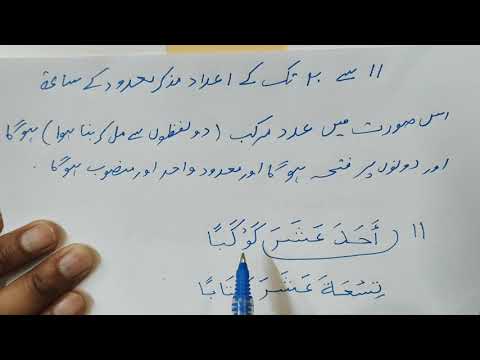 11 سے ۲۰ تک کے اعداد مذکر معدود کے ساتھ
اس صورت میں عدد مرکب (دو لفظوں سے مل کر بنا ہوا) ہوگا
اور دونوں پر فتحہ ہوگا اور معدود واحد اور منصوب ہوگا۔
11 أَحَدَ عَشَرَ كَوْكَبًا
تِسْعَةَ عَشَرَ